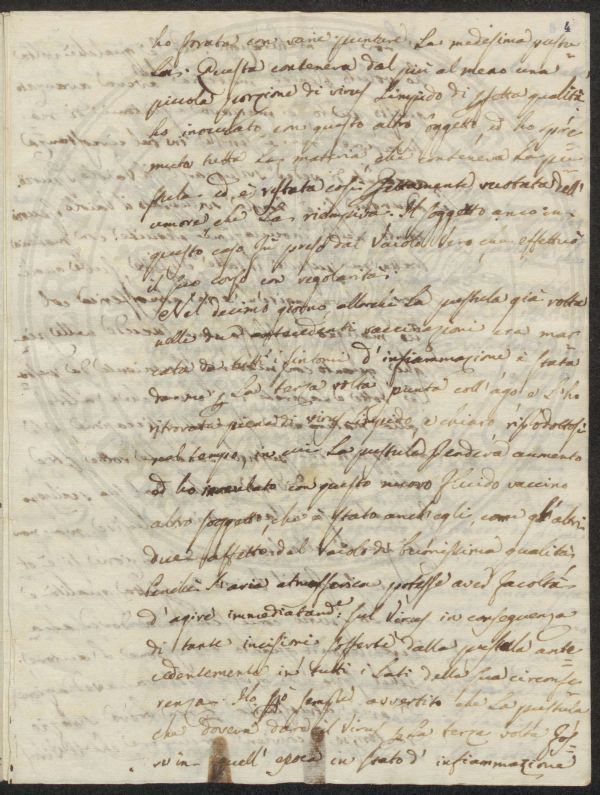 4
ho forata con varie punture la medesima pustu=
la. Questa conteneva dal più al meno una
piccola porzione di virus limpido di psetta qualità
ho inoculato con questo altro soggetto, ed ho spre=
muto tutta la materia che conteneva la pu=
stula ed è restata così perfettamente vuotata dell'
umore che la riempiva. Il soggetto anco in
questo caso fù preso dal Vaiolo vero, che effettuò
il suo corso con regolarità.
Nel decimo giorno, allorchè la pustula già rotta
nelle due antecedenti vaccinazioni era mar=
cata da tutti i sintomi d'infiammazione è stata
da me p la terza volta punta coll'ago, e l'ho
ritrovata piena di virus limpido, e chiaro riprodottosi
nel tempo, in cui la pustula prendeva aumento
ed ho inoculato con questo nuovo fluido vaccino
altro soggetto, che è stato anch'egli, come gli altri
due affetto dal vaiolo di buonissima qualità,
benchè l'aria atmosferica potesse aver facoltà
d'agire immediatam.e sul virus in conseguenza
di tante incisioni sofferte dalla pustula ante=
cedentemente in tutti i lati della sua circonfe=
renza. Ho però sempre avvertito che la pustula
che doveva dare il virus p la terza volta fos=
se in quell'epoca in stato d'infiammazione